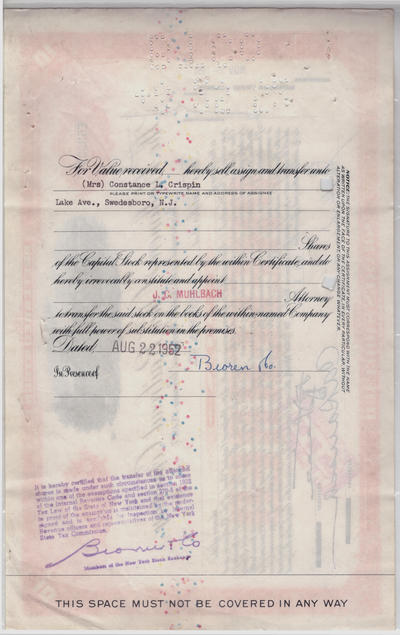 For Value received, hereby sell, assign and transfer unto
(Mrs) Constance L. Crispin
PLEASE PRINT OR TYPEWRITE NAME AND ADDRESS OF ASSIGNEE
Lake Ave., Swedesboro, N.J.
Shares
of the Capital Stock represented by the within Certificate, and do
hereby irrevocably constitute and appoint
J. C. MUHLBACH Attorney
to transfer the said stock on the books of the within-named Company
with full power of substitution in the premises.
Dated, AUG 22 1952
Bioren & Co.
In Presence of
NOTICE: THE SIGNATURE TO THIS ASSIGNMENT MUST CORRESPOND WITH THE NAME
AS WRITTEN UPON THE FACE OF THE CERTIFICATE, IN EVERY PARTICULAR, WITHOUT
ALTERATION OR ENLARGEMENT, OR ANY CHANGE WHATEVER.
It is hereby certified that the transfer of the
shares is made under such circumstances as to come
within one of the exemptions specified in section 1802
of the Internal Revenue Code and section 270-a of the
Tax Law of the State of New York and that evidence
in proof of the exemption is maintained by the under-
signed and is available for inspection by Internal
Revenue officers and representatives of the New York
State Tax Commission.
Bioren & Co
Members of the New York Stock Exchange
THIS SPACE MUST NOT BE COVERED IN ANY WAY